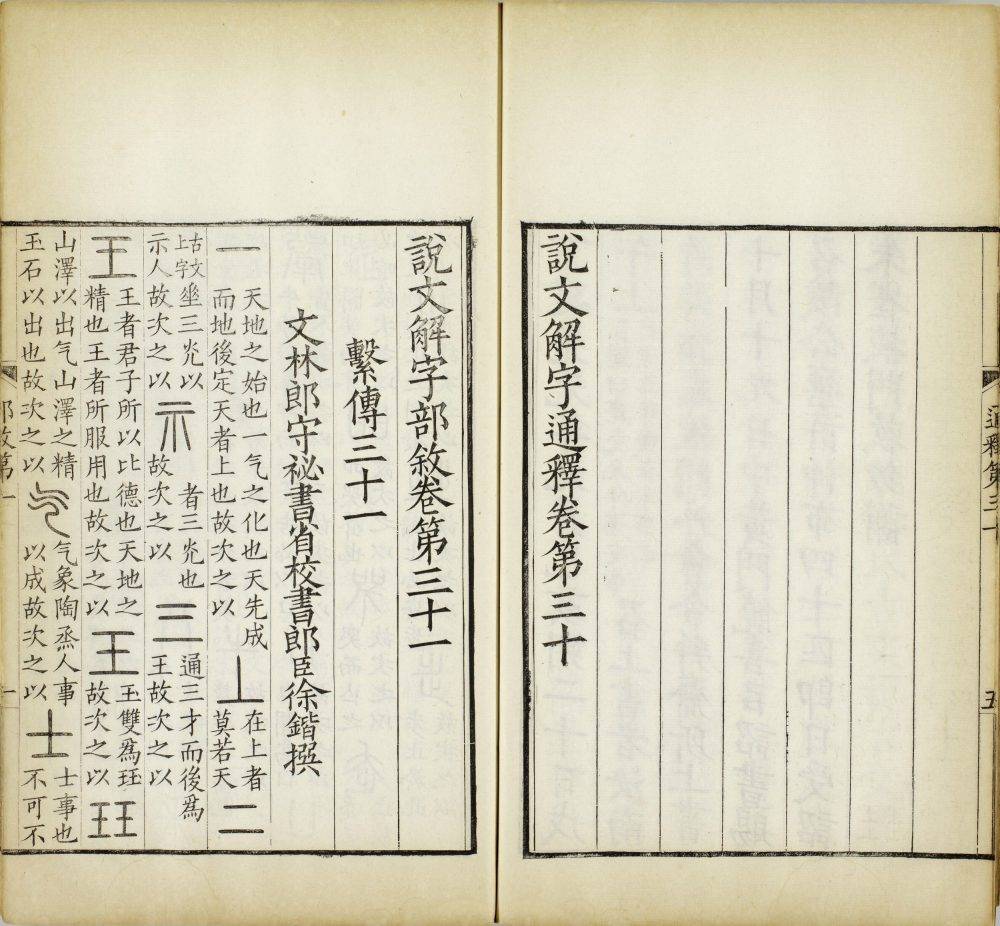 通釋第三十
五
說文解字通釋卷第三十
說文解字部敘卷第三十一
繫傳三十一
文林郎守祕書省校書郎臣徐鍇撰
一天地之始也一气之化也天先成而地後定天者上也故次之以丄在上者莫若天二
古文上字垂三灮以示人故次之以示者三灮也故次之以三通三才而後爲王故次之以
王王者君子所以比德也天地之精也王者所服用也故次之以王玉雙爲玨故次之以玨
山澤以出气山澤之精玉石以出也故次之以气气象陶烝人事以成故次之以士士事也不可不
部敘第一
一